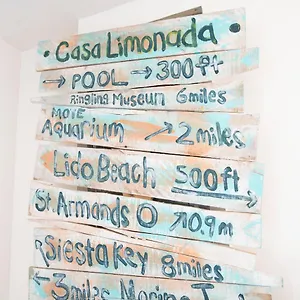 • Casa Limonada •
→ POOL → 300ft
Ringling Museum 6miles
MOTE
Aquarium → 2miles
Lido Beach 500ft
St. Armands O → 0.9m
Siesta Key 8miles
3miles Marine